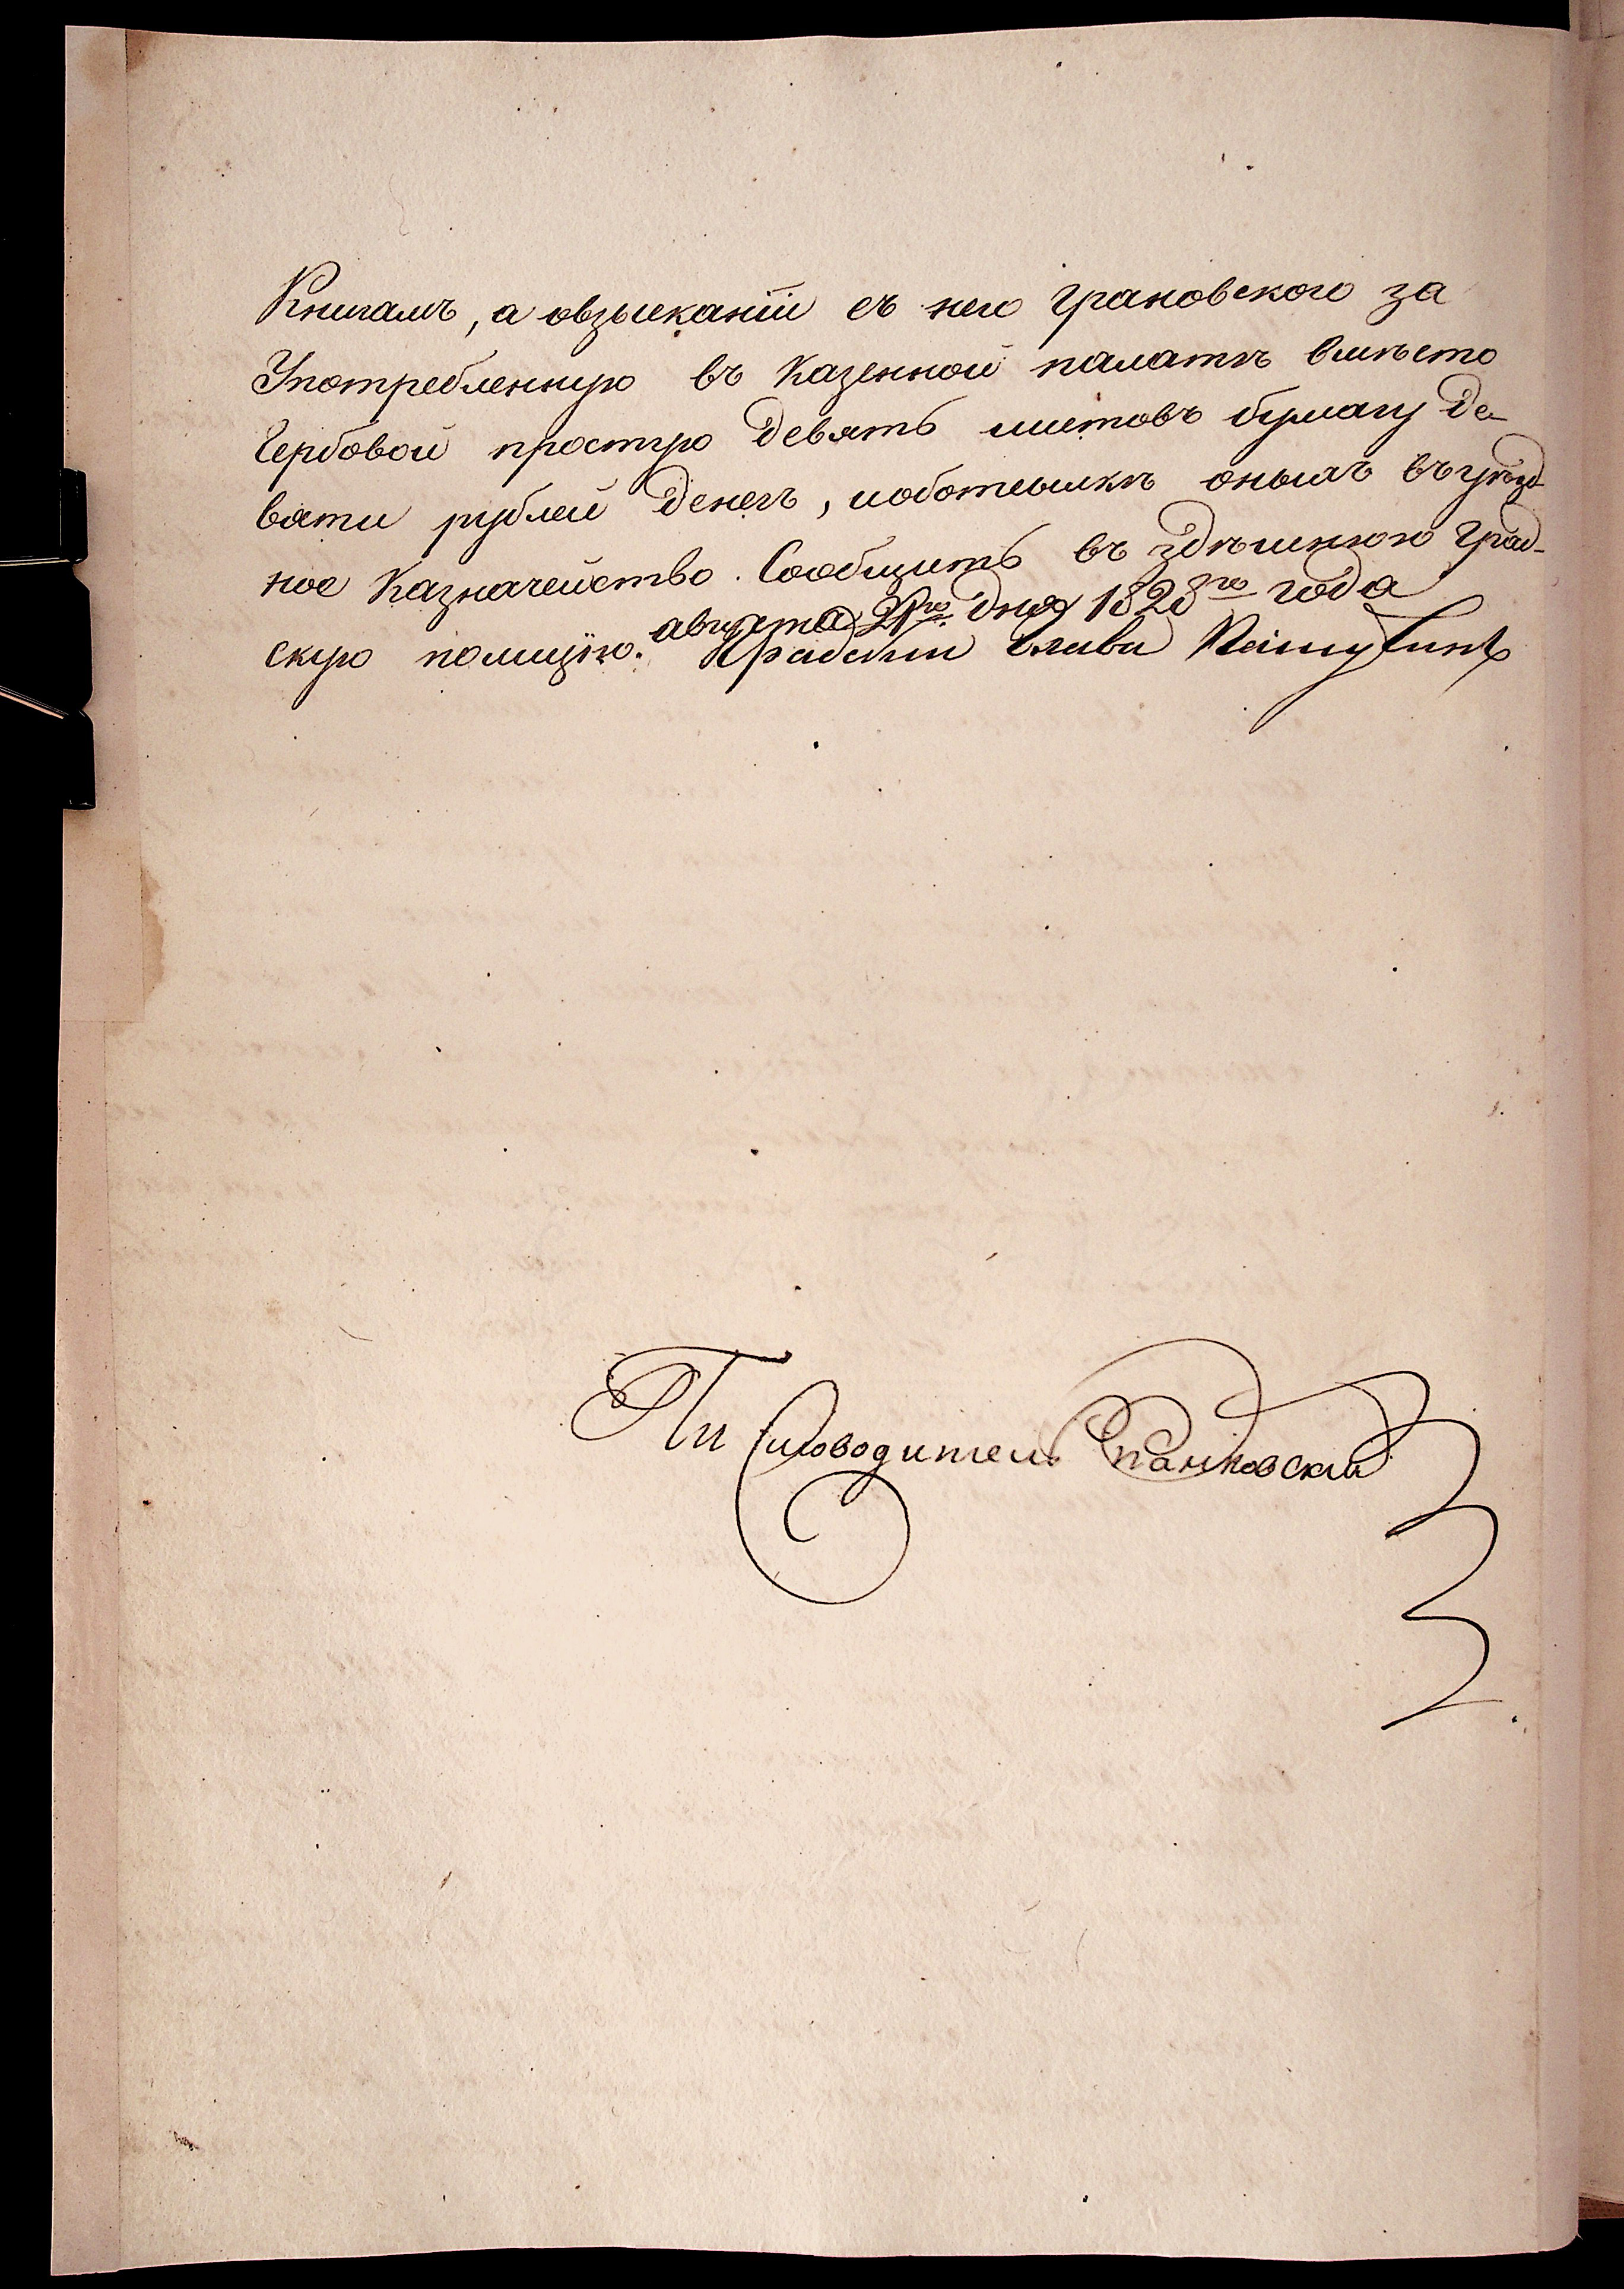 Книгамъ, а овзысканіи съ него Грановского за
Употребленную въ Казенной палатѣ вмѣсто
Гербовой простую девять листовъ бумагу де-
вяти рублей денегъ, иоботсылкѣ оныхъ въуѣзд-
ное Казначейство. Сообщить въ здѣшнюю град-
скую полицію. августа 21го дня 1828го года
Градскій Глава
Писмоводитель